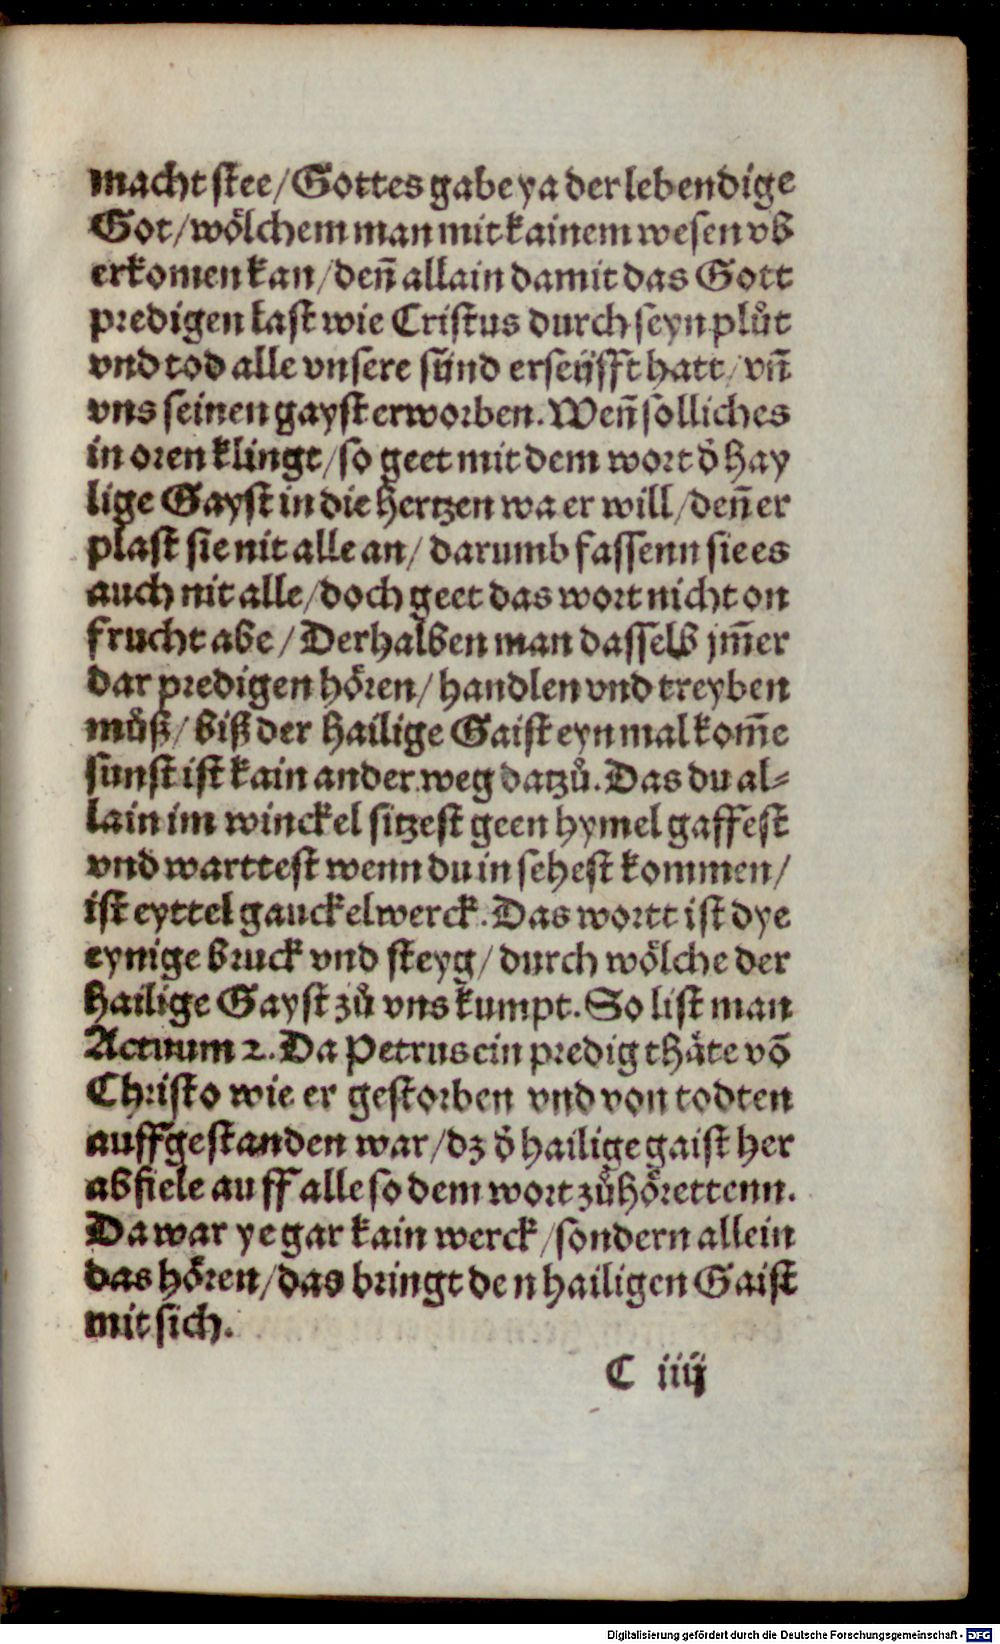 macht stee/Gottes gabe ya der lebendige
Got/wölchem man mit kainem wesen vb
erkomen kan/deñ allain damit das Gott
predigen last wie Cristus durch seyn plůt
vnd tod alle vnsere sünd erseüfft hatt/vñ
vns seinen gayst erworben. Weñ solliches
in oren klingt/so geet mit dem wort d̄ hay
lige Gayst in die hertzen wa er will/deñ er
plast sie nit alle an/ darumb fassenn sie es
auch nit alle/doch geet das wort nicht on
frucht abe/ Derhalben man dasselb jm̄er
dar predigen hören/ handlen vnd treyben
můß/ biß der hailige Gaist eyn mal kom̄e
sunst ist kain ander weg datzů. Das du al⸗
lain im winckel sitzest geen hymel gaffest
vnd warttest wenn du in sehest kommen/
ist eyttel gauckelwerck. Das wortt ist dye
eynige bruck vnd steyg/ durch wölche der
hailige Gayst zů vns kumpt. So list man
Actuum 2. Da Petrus ein predig thäte vō
Christo wie er gestorben vnd von todten
auffgestanden war/dz d̄ hailige gaist her
ab fiele auff alle so dem wort zůhörettenn.
Da war ye gar kain werck/sondern allein
das hören/das bringt den hailigen Gaist
mit sich.
C iiij
Digitalisierung gefördert durch die Deutsche Forschungsgemeinschaft - DFG